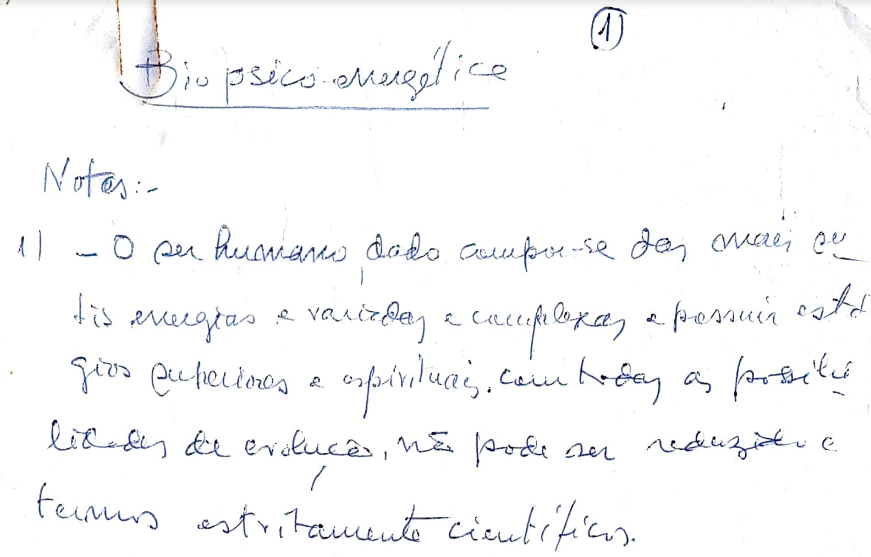 1
Biopsico-energética
Notas:-
1) - O ser humano, dado compor-se das mais su-
tis energias e variadas e complexas e possuir está-
gios superiores e espirituais, com todas as possibi-
lidades de evolução, não pode ser reduzido a
termos estritamente científicos.